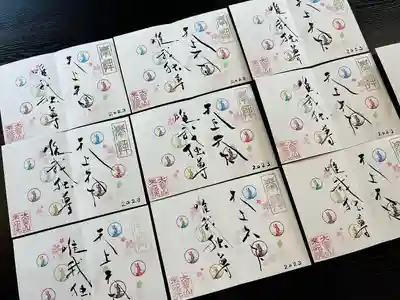 天上天下
唯我独尊
2023
天上天下
唯我独尊
2023
天上天下
唯我独尊
2023
天上天下
唯我独尊
2023
天上天下
唯我独尊
2023
天上天下
唯我独尊
2023
天上天
唯我独
天上天下
唯我独尊
2023
天上天下
唯我独尊